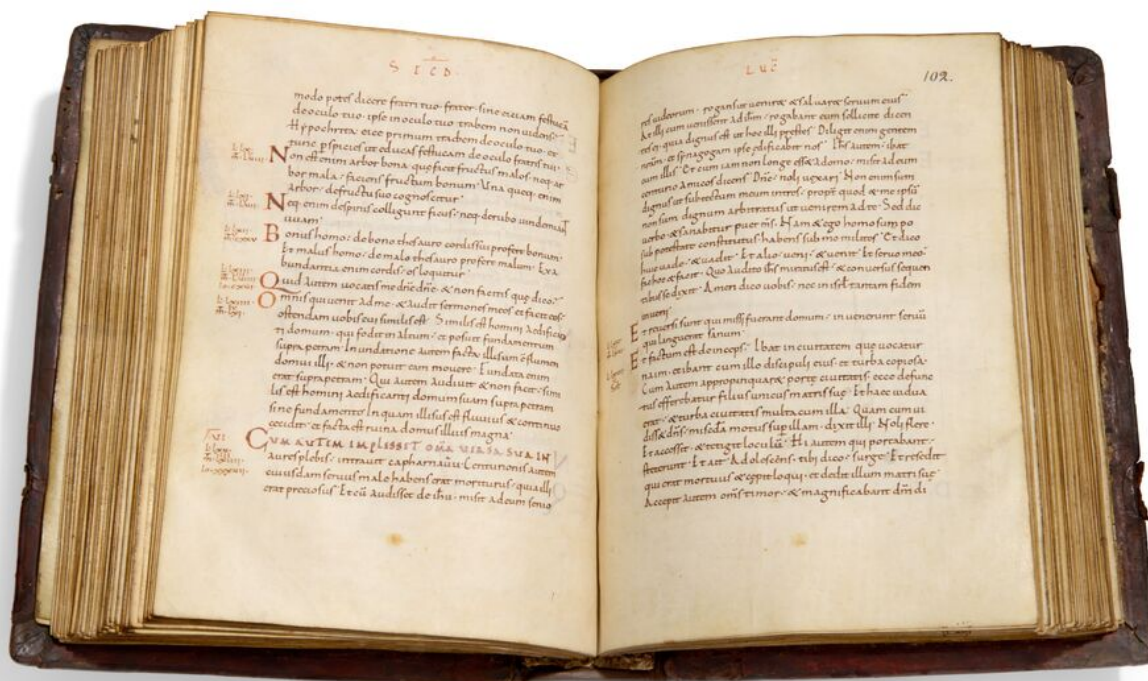 S E C D
modo potes dicere fratri tuo· frater· sine eiciam festucā
de oculo tuo· ipse in oculo tuo trabem non uidens·
Hypochrita· eice primum trabem de oculo tuo· et
tunc pspicies ut educas festucam de oculo fratris tui·
Non est enim arbor bona· quę facit fructus malos· neq· ar
bor mala· faciens fructum bonum· Una queq· enim
arbor· de fructu suo cognoscitur·
Neq· enim de spinis colligunt ficus· neq· de rubo uindemiaṫ
uuam·
Bonus homo· de bono thesauro cordis sui profert bonum·
Et malus homo· de malo thesauro profert malum· Ex a
bundantia enim cordis· os loquitur·
Quid autem uocatis me dn̄e dn̄e· & non facitis quę dico·
Omnis qui uenit ad me· & audit sermones meos et facit eos·
ostendam uobis cui similis est· Similis est homini aedificā
ti domum· qui fodit in altum· et posuit fundamentum
supra petram· Inundatione autem facta illisum ē flumen
domui illi· & non potuit eam mouere· Fundata enim
erat supra petram· Qui autem audiuit & non facit· simi
lis est homini aedificanti domum suam supra petram
sine fundamento· In quam illisus est fluuius & continuo
cecidit· et facta est ruina domus illius magna·
CUM AUTEM IMPLESSET OM̄A UERBA SUA IN
aures plebis· intrauit capharnaū· Centurionis autem
cuiusdam seruus male habens erat moriturus· qui illi
erat preciosus· Et cū audisset de ihu· misit ad eum senio
LUC̄
102.
res iudeorum· rogans ut ueniret & saluaret seruum eius·
At illi cum uenissent ad ihm̄· rogabant eum sollicite dicen
tes ei· quia dignus est ut hoc illi pręstes· Diligit enim gentem
nr̄am· et synagogam ipse ędificabit nos· Ihs autem· ibat
cum illis· Et cum iam non longe esset a domo· misit ad eum
centurio amicos dicens· Dn̄e· noli uexari· Non enim sum
dignus ut sub tectum meum intres· propt quod & me ipsū
non sum dignum arbitratus ut uenirem ad te· Sed dic
uerbo· & sanabitur puer m̄s· Nam & ego homo sum
sub potestate constitutus· habens sub me milites· Et dico
huic uade· & uadit· Et alio· ueni· & uenit· Et seruo meo·
fac hoc & facit· Quo audito ihs miratus est· & conuersus sequen
tibus se dixit· Amen dico uobis· nec in isrl tantam fidem
inueni·
Et reuersi sunt qui missi fuerant domum· inuenerunt seruū
qui languerat sanum·
Et factum est deinceps· Ibat in ciuitatem quę uocatur
naim· et ibant cum illo discipuli eius· et turba copiosa·
Cum autem appropinquaret portę ciuitatis· ecce defunc
tus efferebatur filius unicus matris suę· Et haec uidua
erat· & turba ciuitatis multa cum illa· Quam cum ui
disset dn̄s· misc̄da motus sup illam· dixit illi· Noli flere·
Et accessit· & tetigit loculū· Hi autem qui portabant·
steterunt· Et ait· Adolescens· tibi dico· surge· Et resedit
qui erat mortuus & cępit loqui· et dedit illum matri suę·
Accepit autem om̄s timor· & magnificabant dm̄ di